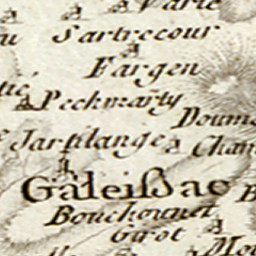 Varie
Sartrecour
Fargen
Pechmarty
Doum
Jarsilange
Chan
Galeißac
B
Bouchounet
Girot
Mou